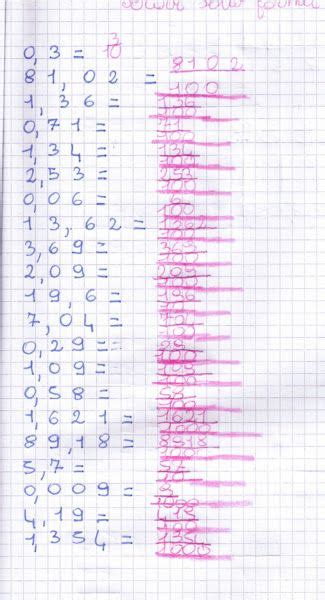 0,3 = 3/10
81,02 = 8102/100
1,36 = 136/100
0,71 = 71/100
1,34 = 134/100
2,53 = 253/100
0,06 = 6/100
13,62 = 1362/100
3,69 = 369/100
2,09 = 209/100
19,6 = 196/10
7,04 = 704/100
0,29 = 29/100
1,09 = 109/100
0,58 = 58/100
1,621 = 1621/1000
89,18 = 8918/100
5,7 = 57/10
0,009 = 9/1000
4,19 = 419/100
1,354 = 1354/1000